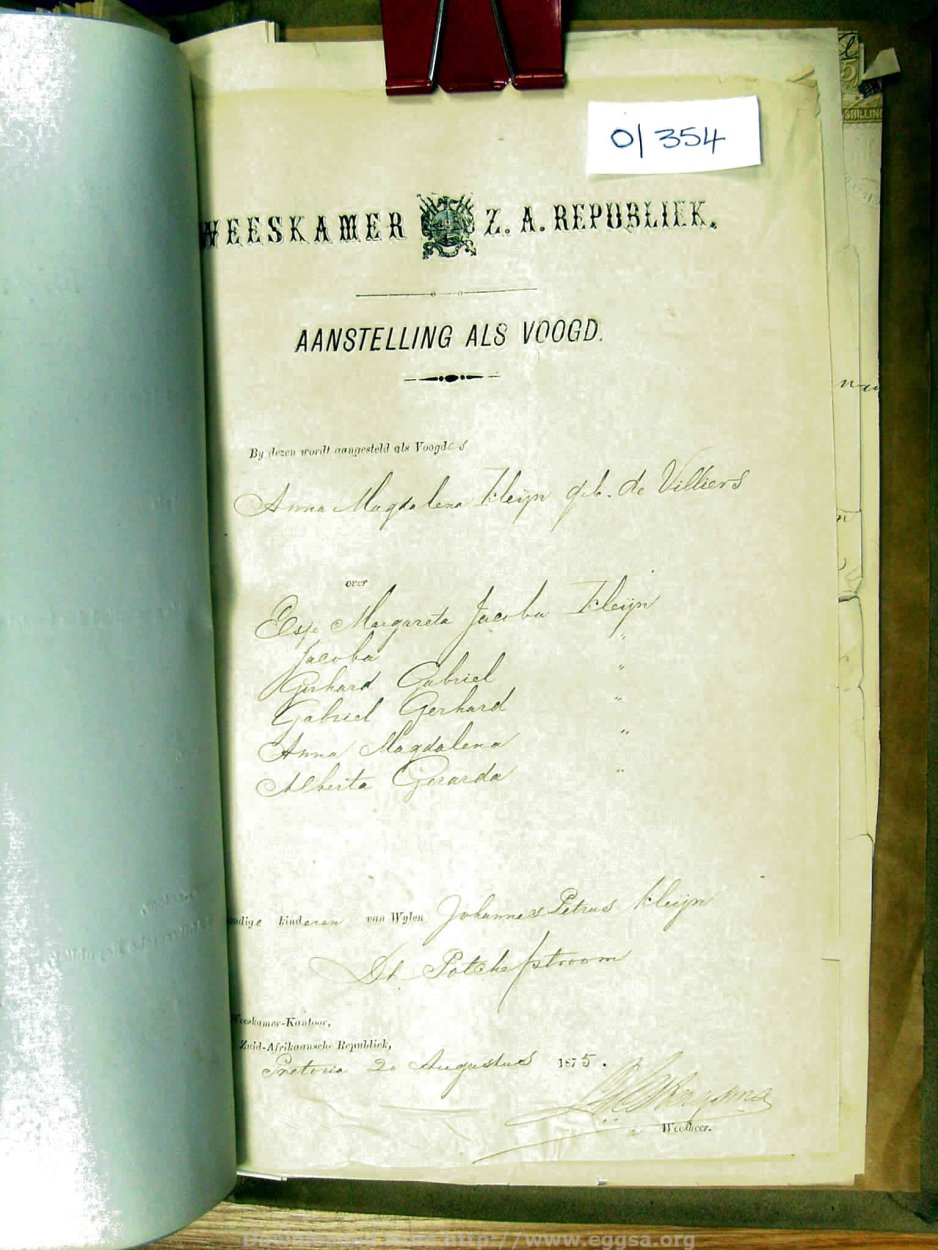 0/354
SHILLING
WEESKAMER Z. A. REPUBLIEK.
AANSTELLING ALS VOOGD.
By dezen wordt aangesteld als Voogdes
Anna Magdalena Kleijn geb. de Villiers
over
Elsje Margareta Jacoba Kleijn
Jacoba "
Gerhard Gabriel "
Gabriel Gerhard "
Anna Magdalena "
Alberta Gerarda "
ndige kinderen van Wylen Johannes Petrus Kleijn
Dt Potchefstroom
Weeskamer-Kantoor,
Zuid-Afrikaansche Republiek,
Pretoria 20 Augustus 1875.
Weesheer.
Downloaded from http://www.eggsa.org